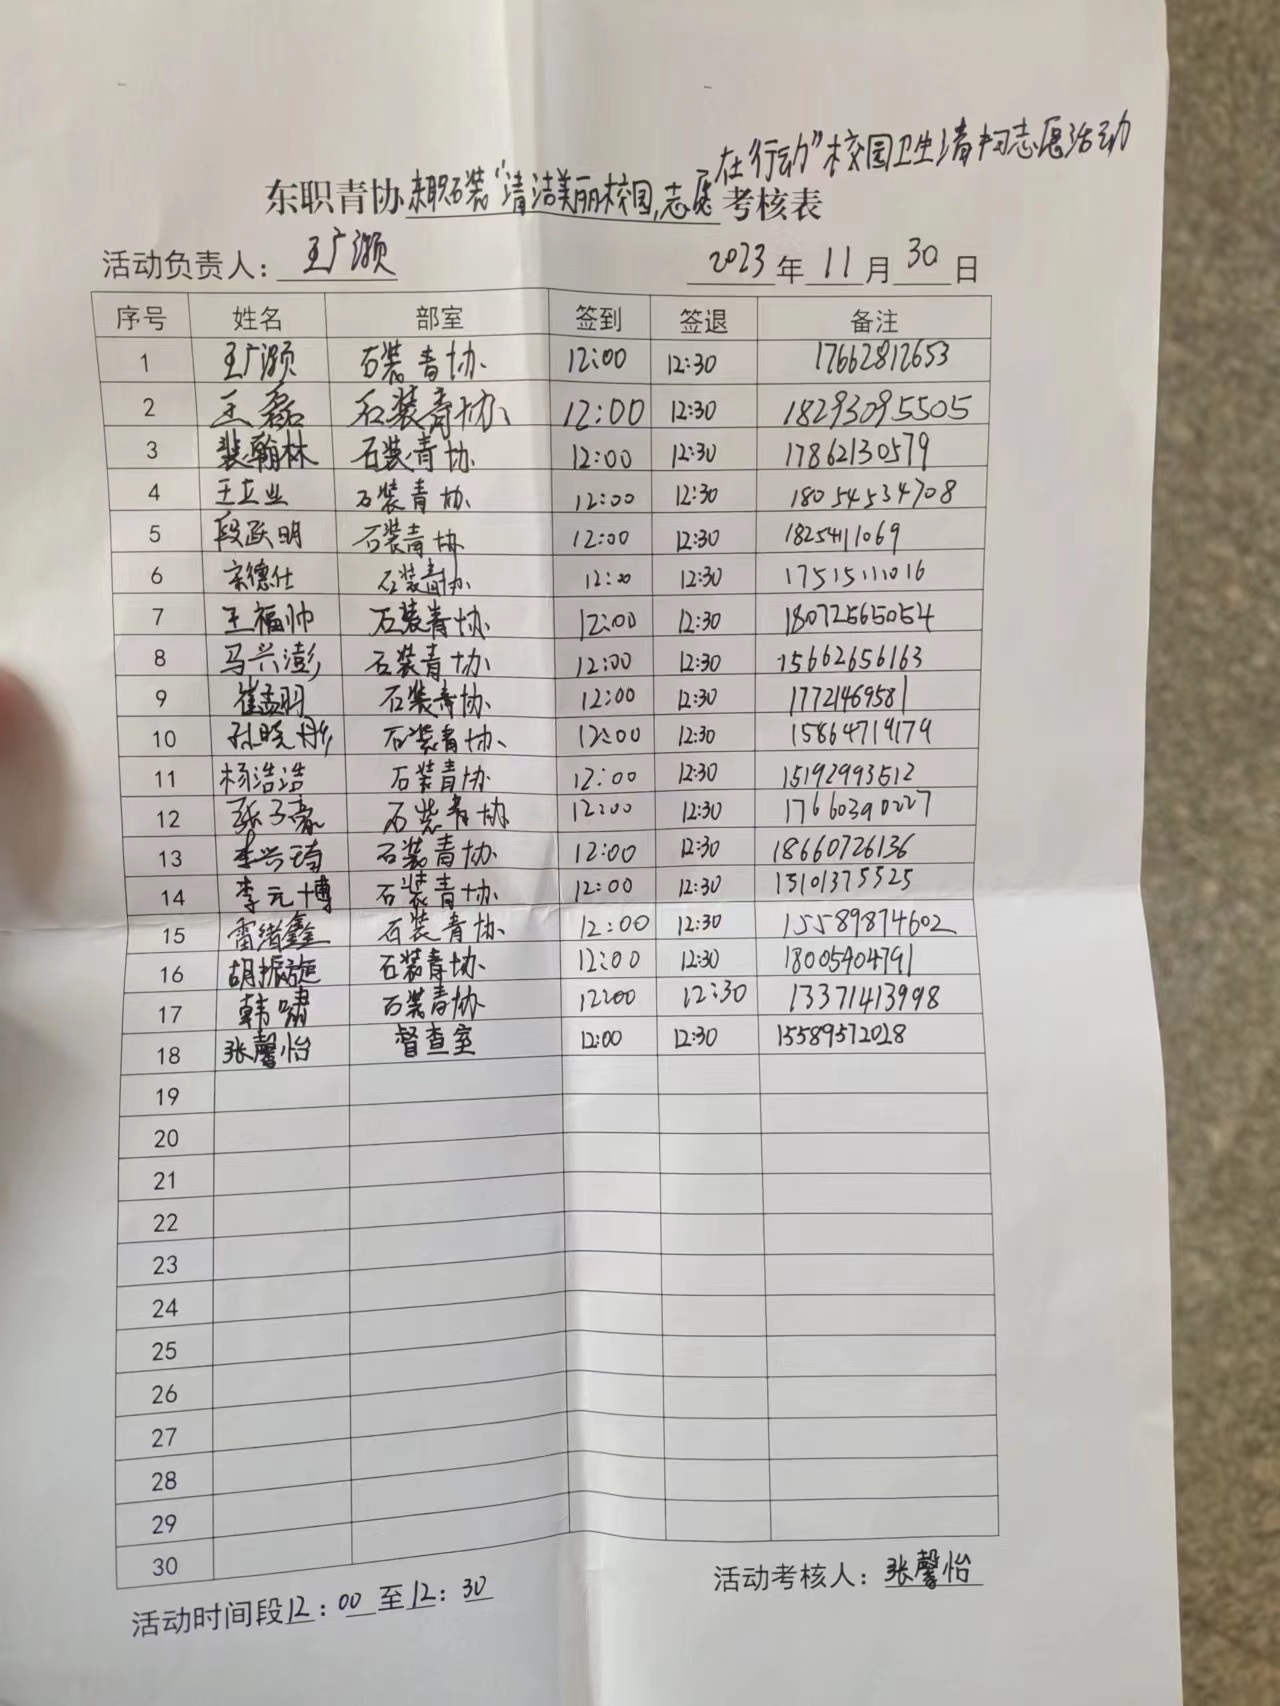 在行动"校园卫生清扫志愿活动
东职青协东职石装"清洁美丽校园,志愿考核表
活动负责人: 王广灏 2023年11月30日
序号 姓名 部室 签到 签退 备注
1 王广灏 石装青协 12:00 12:30 17662812653
2 王磊 石装青协 12:00 12:30 18293095505
3 裴翰林 石装青协 12:00 12:30 17862130579
4 王立业 石装青协 12:00 12:30 18054534708
5 段跃明 石装青协 12:00 12:30 1825411069
6 宗德仕 石装青协 12:00 12:30 17515111016
7 王福帅 石装青协 12:00 12:30 18072565054
8 马兴澎 石装青协 12:00 12:30 15662656163
9 崔孟羽 石装青协 12:00 12:30 17721469581
10 孙晓彤 石装青协 12:00 12:30 15864719179
11 杨浩浩 石装青协 12:00 12:30 15192993612
12 张子豪 石装青协 12:00 12:30 17660390227
13 李兴琦 石装青协 12:00 12:30 18660726136
14 李元博 石装青协 12:00 12:30 15101375525
15 雷绪鑫 石装青协 12:00 12:30 15589874602
16 胡振旋 石装青协 12:00 12:30 18005404791
17 韩啸 石装青协 12:00 12:30 13371413998
18 张馨怡 督查室 12:00 12:30 15589572028
19
20
21
22
23
24
25
26
27
28
29
30
活动考核人: 张馨怡
活动时间段12:00至12:30